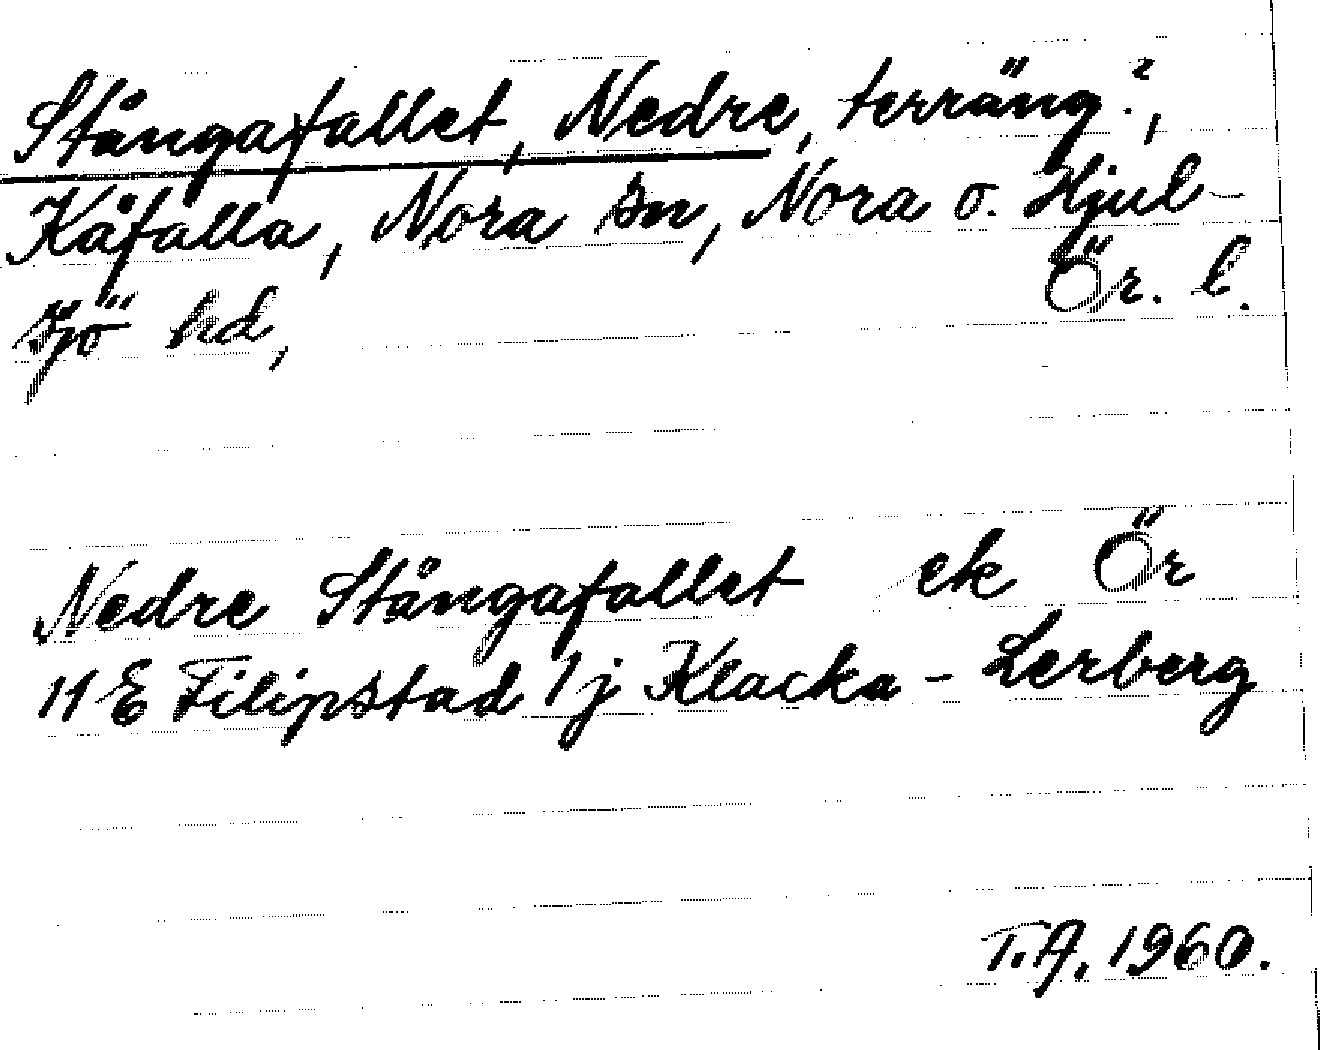 Stångafallet, Nedre, terräng?,
Kåfalla, Nora sn, Nora o. Hjul-
sjö hd, Ör. l.
Nedre Stångafallet ek Ör
11 E Filipstad 1 j Klacka - Lerberg
T.A. 1960.